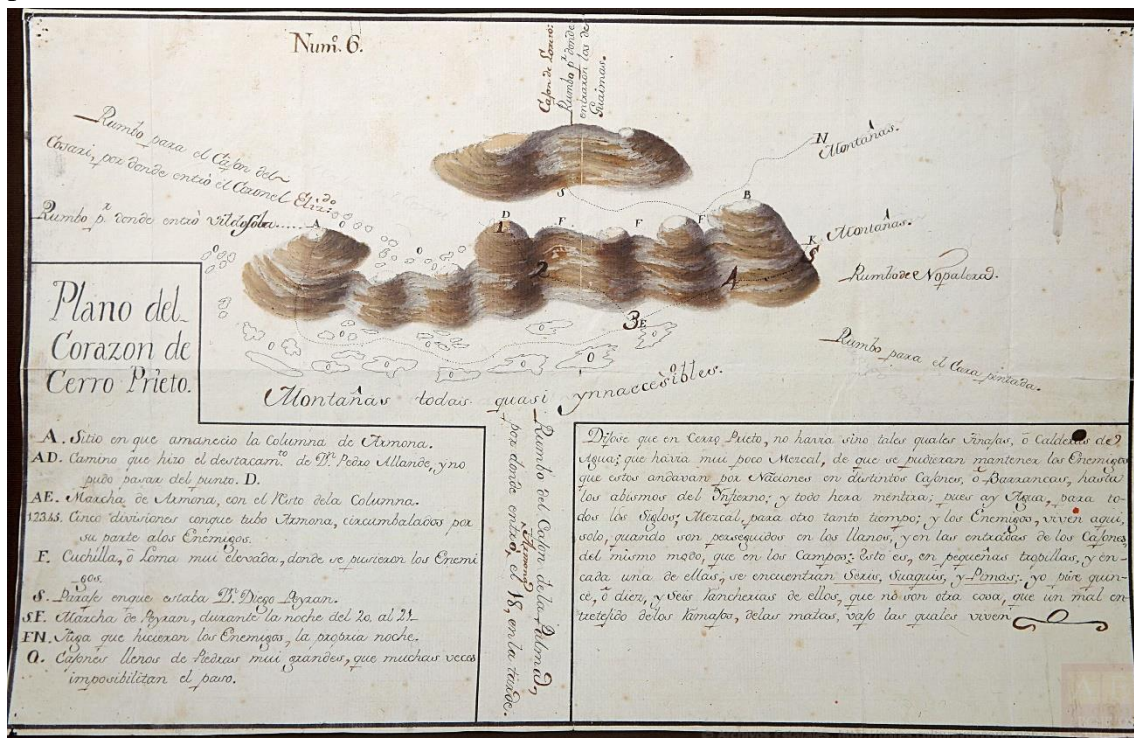 Num.º 6.
Cajon de Lonio:
Rumbo p.r donde
entraron los de
Guaimas.
Rumbo para el Cajon del
Cosari, por donde entrò el Coronel Eliz.do
Rumbo p.r donde entrò Vildosola
N
Montañas.
A
D
F
F
F
B
S
K
Montañas.
1
2
3
E
4
5
Rumbo de Nopalera.
Rumbo para el Cara pintada.
Plano del
Corazon de
Cerro Prieto.
Montañas todas quasi ynnaccesibles.
A. Sitio en que amanecio la Columna de Armona.
AD. Camino que hizo el destacam.to de D.n Pedro Allande, y no
pudo pasar del punto. D.
AE. Marcha de Armona, con el Resto dela Columna.
1.2.3.4.5. Cinco divisiones conque tubo Armona, circumbalados por
su parte alos Enemigos.
F. Cuchilla, ò Loma mui elevada, donde se pusieron los Enemi
gos.
S. Paraje enque estaba D.n Diego Peyran.
SF. Marcha de Peyran, durante la noche del 20. al 21.
FN. Fuga que hicieron los Enemigos, la propria noche.
O. Cajones llenos de Piedras mui grandes, que muchas veces
imposibilitan el paso.
Rumbo del Cajon de la Palma,
por donde entrò, Armona el 18, en la tarde.
Dijose que en Cerro Prieto, no havia sino tales quales Tinajas, ò Calderas de
Agua; que havia mui poco Mezcal, de que se pudieran mantener los Enemigos
que estos andavan por Naciones en distintos Cajones, ò Barrancas, hasta
los abismos del Infierno; y todo hera mentira; pues ay Agua, para to-
dos los Siglos; Mezcal, para otro tanto tiempo; y los Enemigos, viven aqui,
solo, quando son perseguidos en los llanos, y en las entradas de los Cajones,
del mismo modo, que en los Campos; Esto es, en pequeñas tropillas, y en
cada una de ellas, se encuentran Seris, Suaquis, y Pimas; yo puse quin-
ce, ò diez, y Seis Rancherias de ellos, que nò son otra cosa, que un mal en
tretejido delos Ramajos, delas matas, vajo las quales viven.